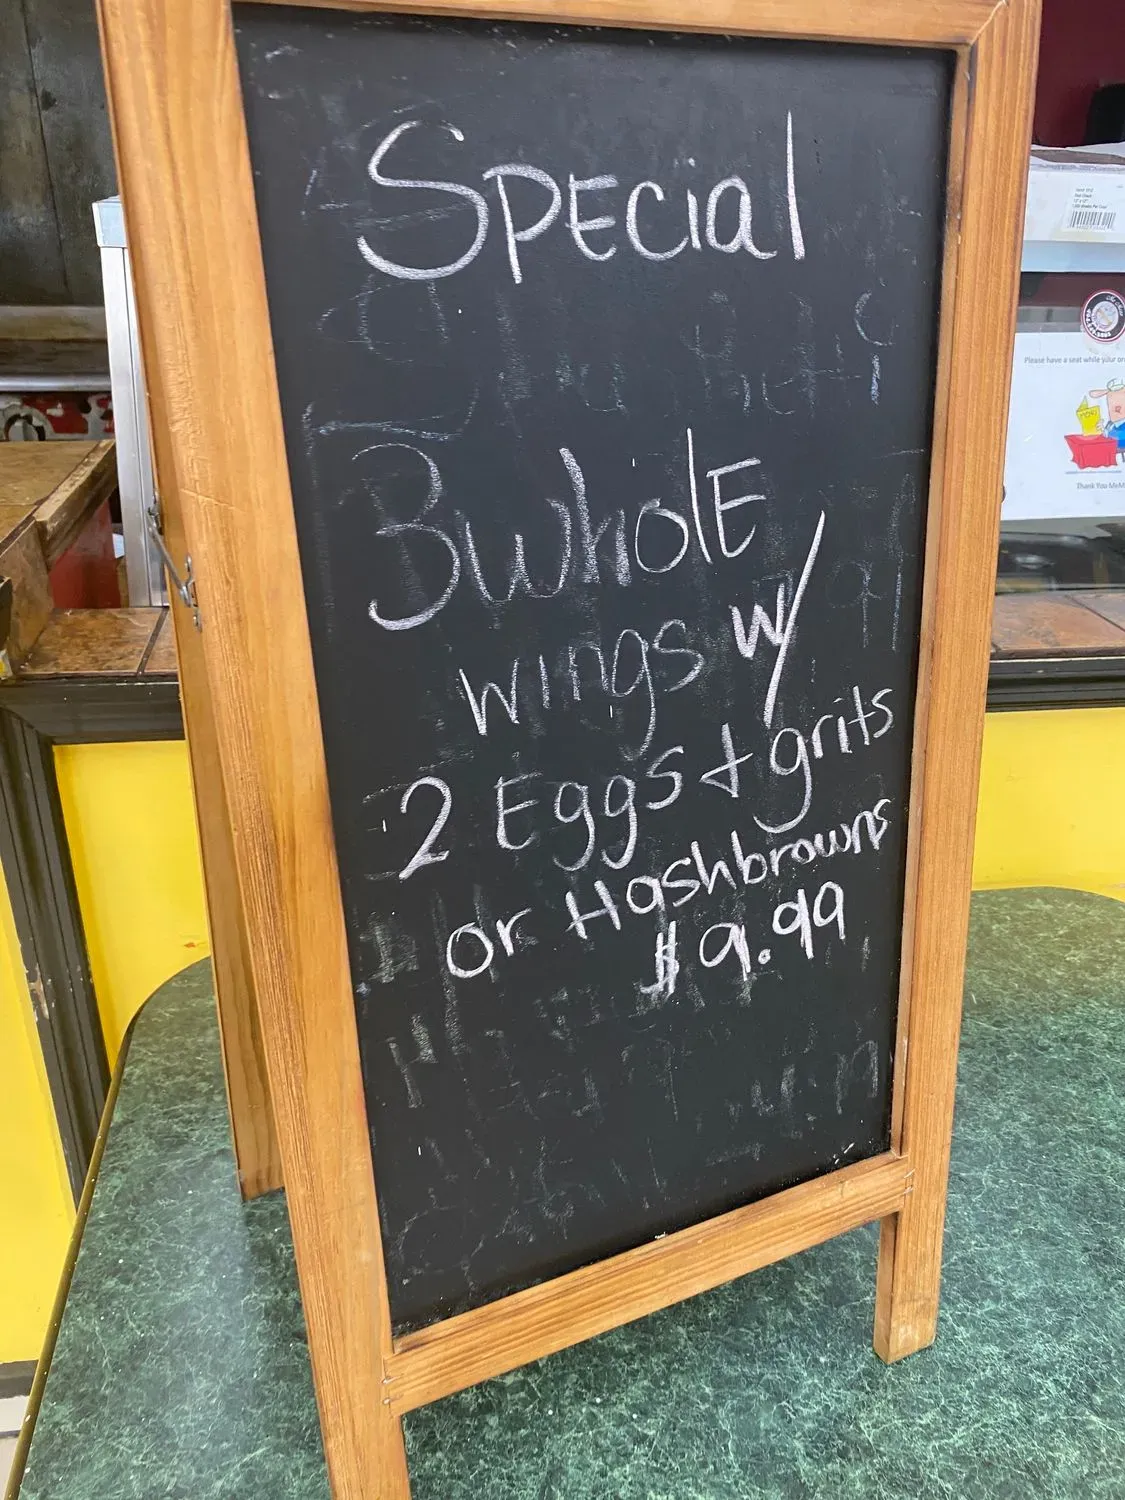 SPECial
3 wholE
wings w/
2 Eggs + grits
or Hashbrowns
$9.99
Please have a seat while your or
MENU
Thank You MeM